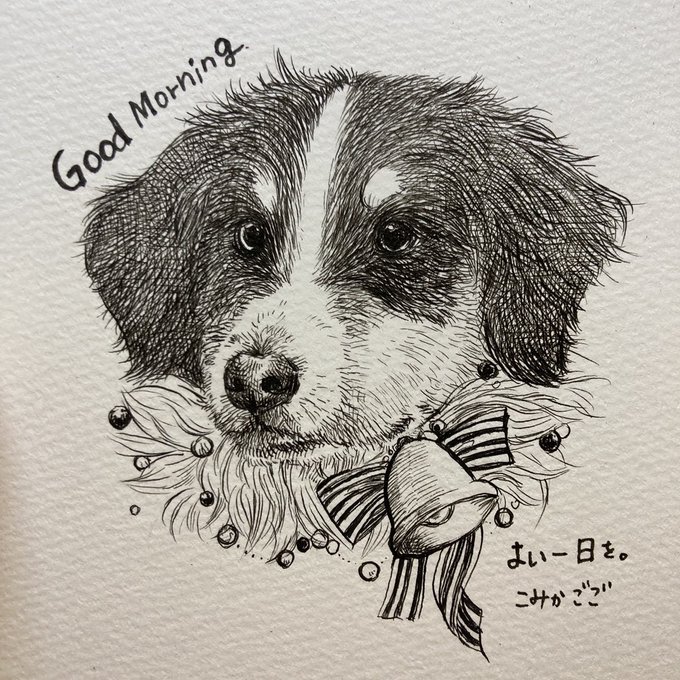 Good Morning
よい一日を。
こみかごご